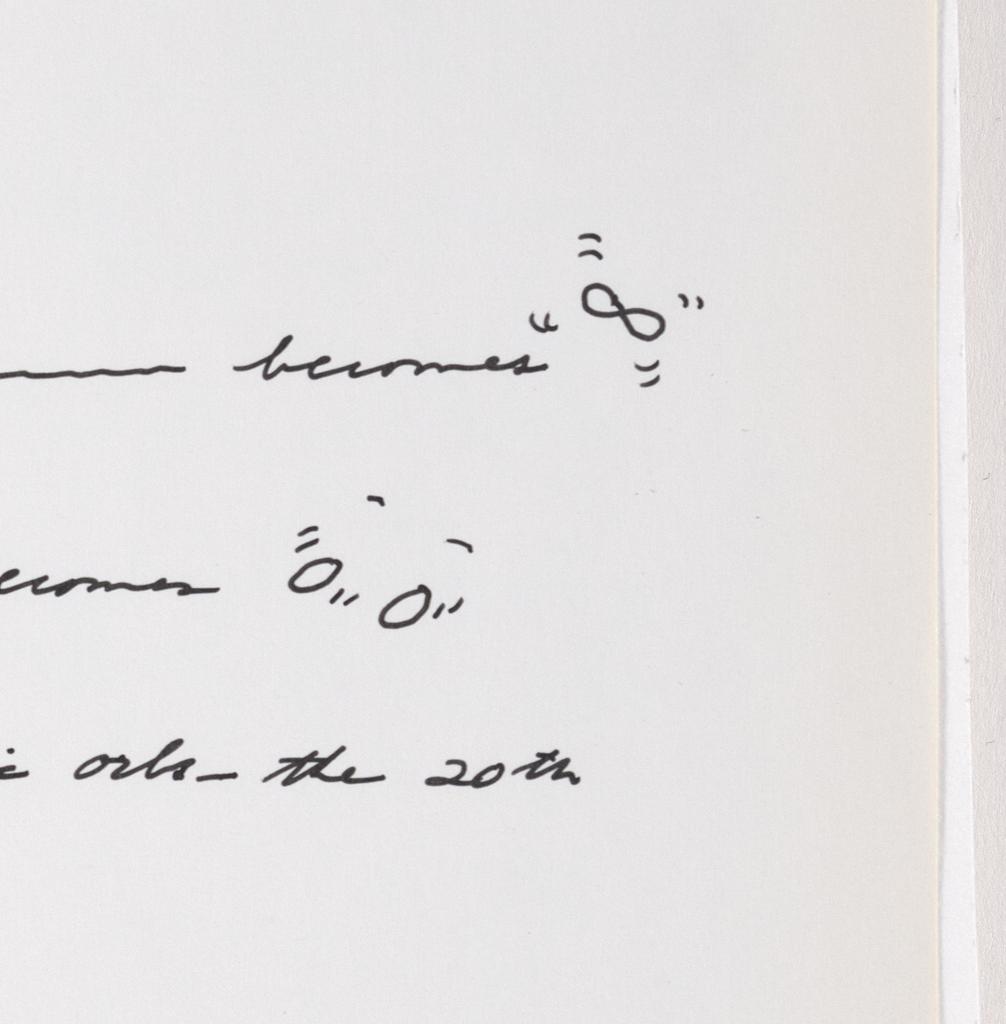 becomes "∞"
ecomes 00
ic orbs— the 20th